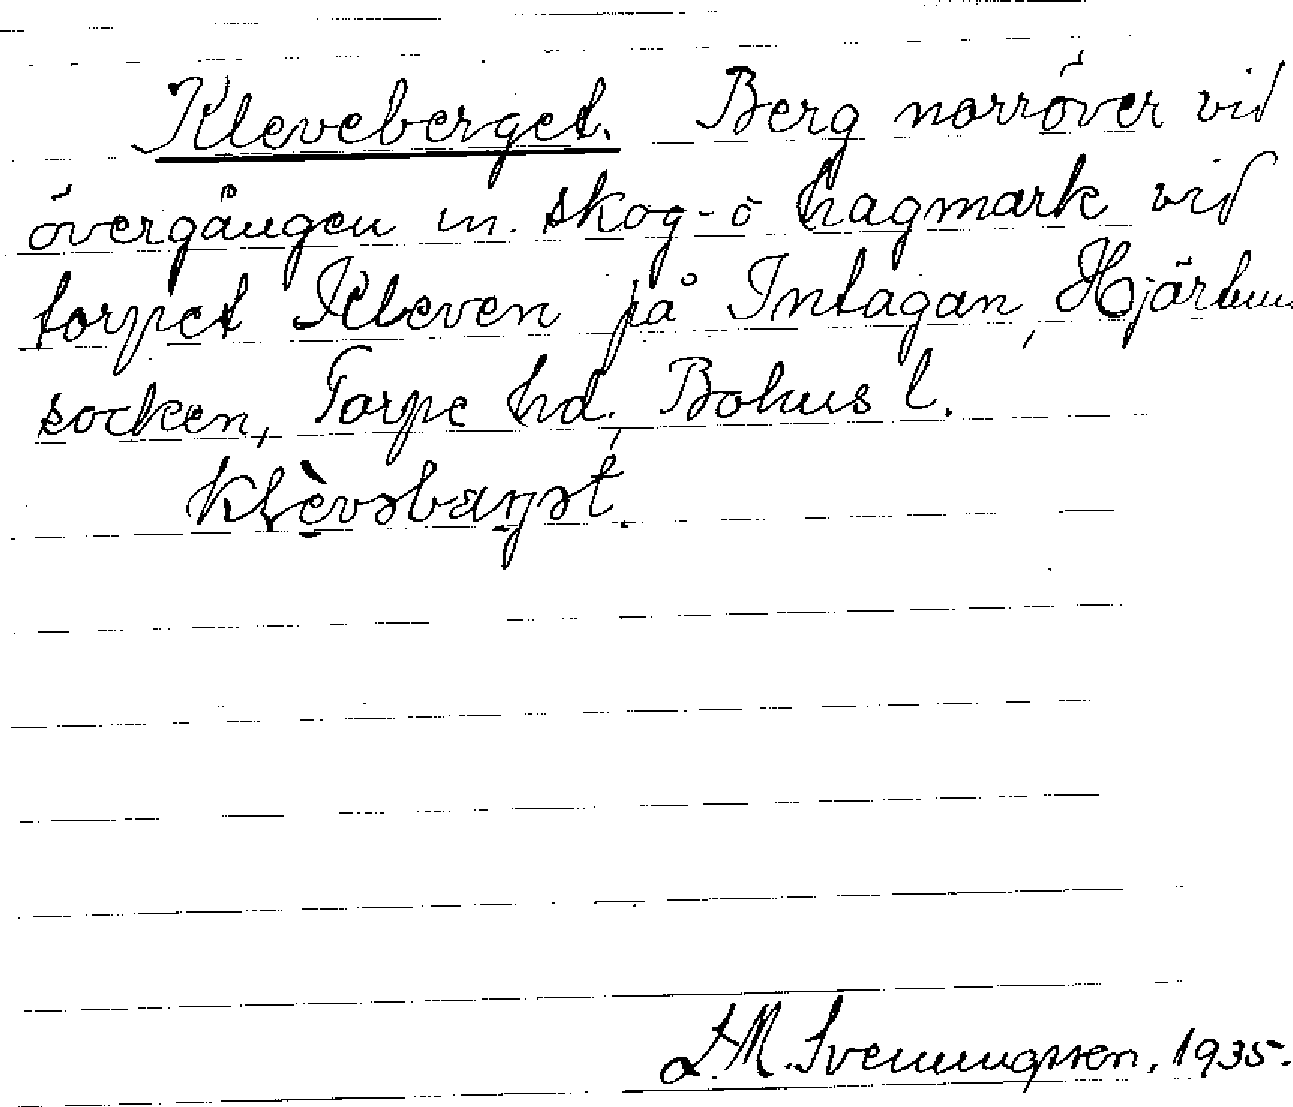 Kleveberget. Berg norröver vid
övergången m. skog- o hagmark vid
torpet Kleven på Intagan, Hjärtum
socken, Torpe hd, Bohus l.
klèvəbærjət.
L.M. Svenungsson, 1935.